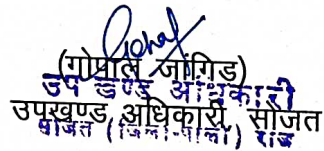 (गोपाल जांगिड)
उप खण्ड अधिकारी
उपखण्ड अधिकारी, सोजत
सोजत (जिला-पाली) राज